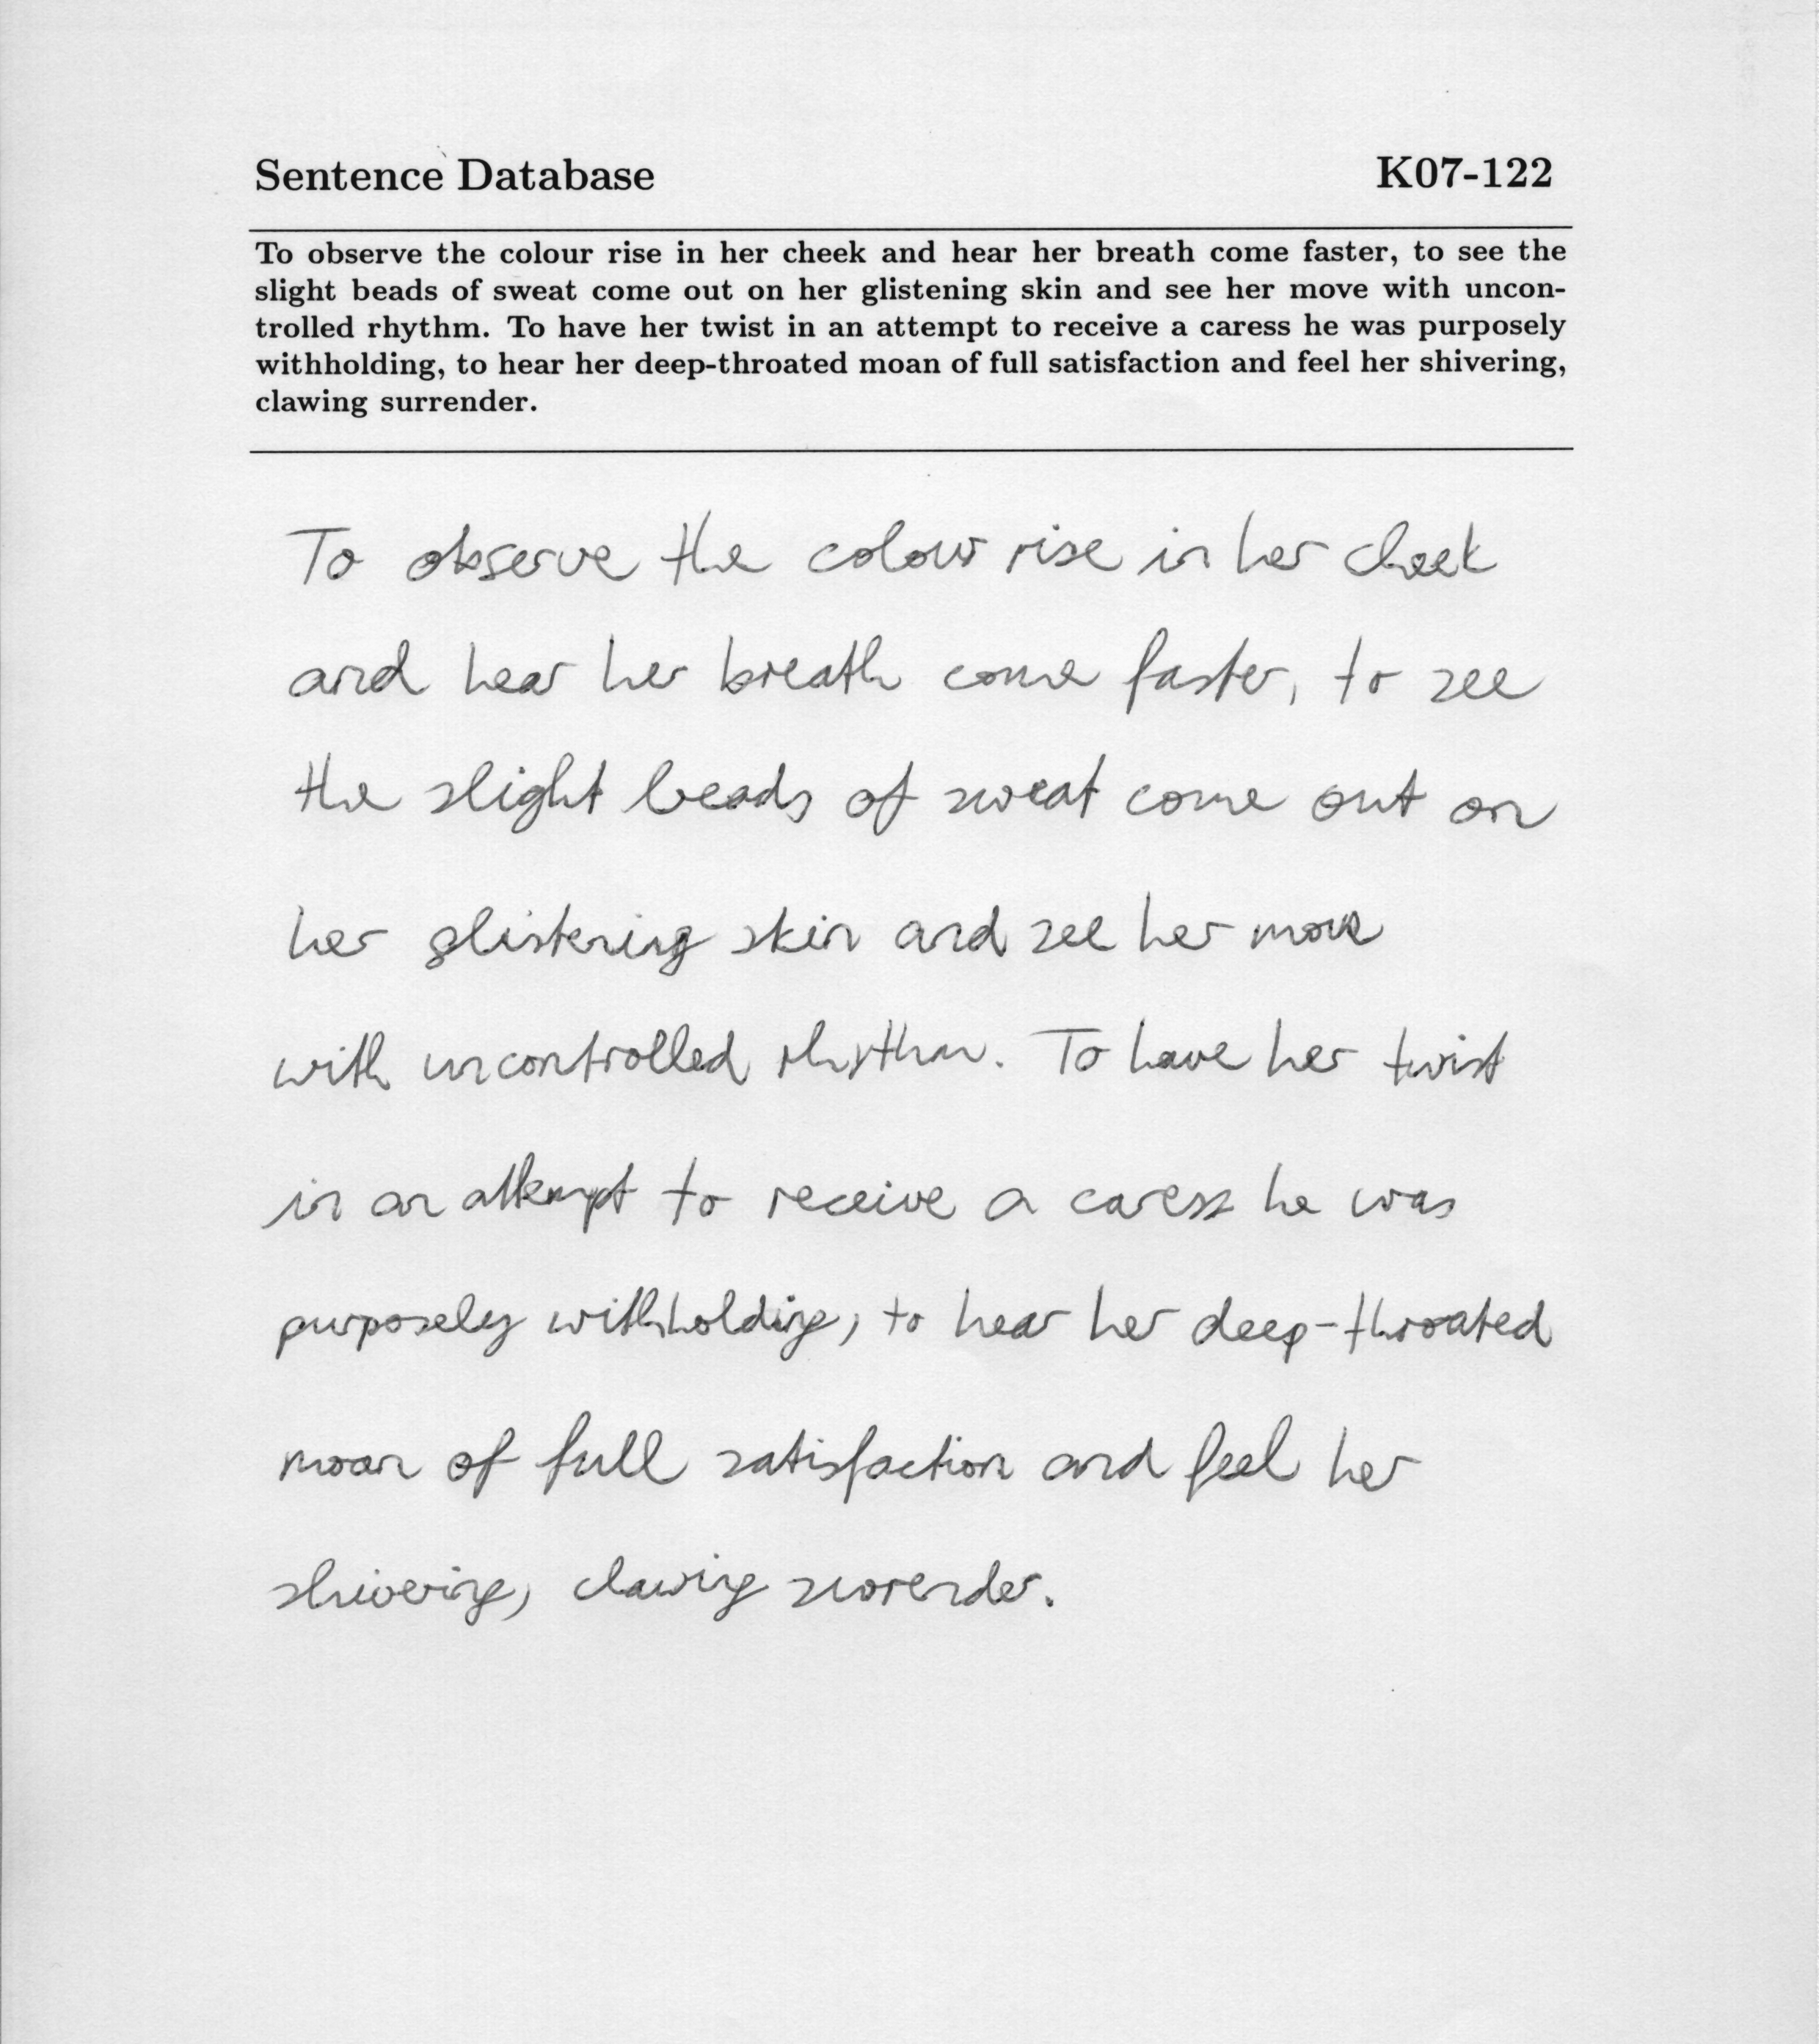 Sentence Database K07-122
To observe the colour rise in her cheek and hear her breath come faster, to see the
slight beads of sweat come out on her glistening skin and see her move with uncon-
trolled rhythm. To have her twist in an attempt to receive a caress he was purposely
withholding, to hear her deep-throated moan of full satisfaction and feel her shivering,
clawing surrender.
To observe the colour rise in her cheek
and hear her breath come faster, to see
the slight beads of sweat come out on
her glistening skin and see her move
with uncontrolled rhythm. To have her twist
in an attempt to receive a caress he was
purposely withholding, to hear her deep-throated
moan of full satisfaction and feel her
shivering, clawing surrender.